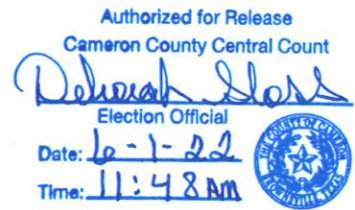 Authorized for Release
Cameron County Central Count
Deborah
Election Official
Date: 6-1-22
Time: 11:48 AM
THE COUNTY OF CAMERON
BROWNSVILLE, TEXAS